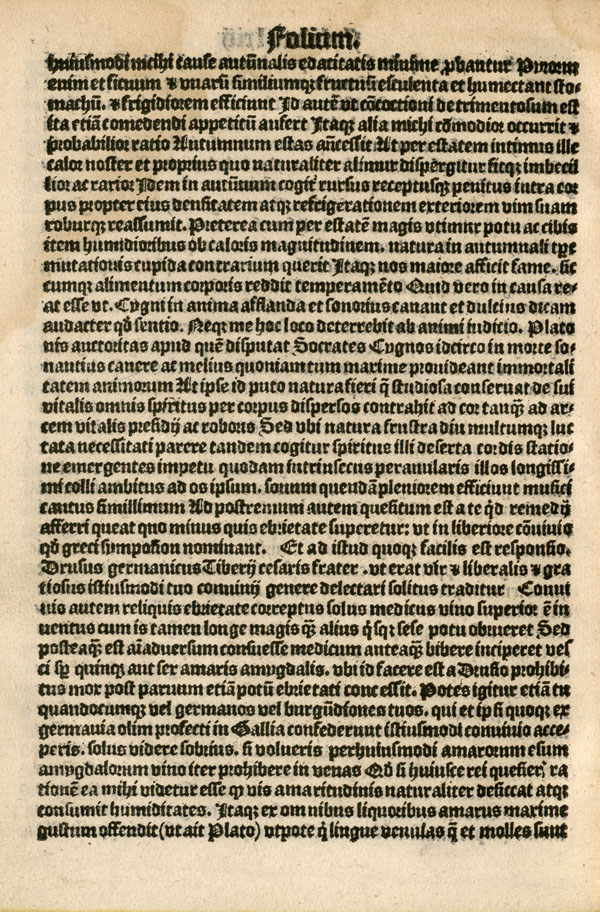 Folium.
huiusmodi michi cause autūnalis edacitatis minime ꝓbantur Pirorum
enim et ficuum & vuarū similiumqꝫ fructuū esculenta et humectant sto-
machū. & frigidiorem efficiunt Id autē vt cōcoctioni detrimentosum est
ita etiā comedendi appetitū aufert Itaqꝫ alia michi cōmodior occurrit &
probabilior ratio Autumnum estas an̄cessit At per estatem intimus ille
calor noster et proprius quo naturaliter alimur dispergitur fitqꝫ imbecil
lior ac rarior Idem in autūtum cogit̄ rursus receptusqꝫ penitus intra cor
pus propter eius densitatem atqꝫ refrigerationem exteriorem vim suam
roburqꝫ reassumit. Preterea cum per estatē magis vtimur potu ac cibis
item humidioribus ob caloris magnitudinem. natura in autumnali tpe
mutationis cupida contrarium querit Itaqꝫ nos maiore afficit fame. sic
cumqꝫ alimentum corporis reddit temperamēto Quid vero in causa re-
at esse vt. Cygni in anima afflanda et sonorius canant et dulcius dicam
audacter qð sentio. Neqꝫ me hoc loco deterrebit ab animi iudicio. Plato
nis auctoritas apud quē disputat Socrates Cygnos idcirco in morte so-
nantius canere ac melius quoniam tum maxime prouideant immortali
tatem animorum At ipse id puto natura fieri q̄ studiosa conseruat de sui
vitalis omnis spiritus per corpus dispersos contrahit ad cor tanqꝫ ad ar-
cem vitalis presidij ac roboris Sed vbi natura frustra diu multumqꝫ luc
tata necessitati parere tandem cogitur spiritus illi deserta cordis statio-
ne emergentes impetu quodam intrinsecus peranularis illos longissi-
mi colli ambitus ad os ipsum. sonum quendā pleniorem efficiunt musici
cantus simillimum Ad postremum autem quesitum est a te qð remedij
afferri queat quo minus quis ebrietate superetur: vt in liberiore cōuiuio
qð greci symposion nominant. Et ad istud quoqꝫ facilis est responsio.
Drusus germanicus Tiberij cesaris frater . vt erat vir & liberalis & gra
tiosus istiusmodi tuo conuiuij genere delectari solitus traditur Conui
uis autem reliquis ebrietate correptus solus medicus vino superior ē in
uentus cum is tamen longe magis qꝫ alius q̇sqꝫ sese potu obrueret Sed
posteaqꝫ est aīaduersum consuesse medicum anteaqꝫ bibere inciperet ves
ci sꝑ quinqꝫ aut sex amaris amygdalis. vbi id facere est a Drusio prohibi-
tus mox post paruum etiā potū ebrietati concessit. Potes igitur etiā tu
quandocumqꝫ vel germanos vel burgūdiones tuos. qui et ipsi quoqꝫ ex
germania olim profecti in Gallia consederunt istiusmodi conuiuio acce-
peris. solus videre sobrius. si volueris perhuiusmodi amarorum esum
amygdalorum vino iter prohibere in venas Qð si huiusce rei quesier̄ ra
tionē ea mihi videtur esse ꝙ vis amaritudinis naturaliter desiccat atqꝫ
consumit humiditates. Itaqꝫ ex omnibus liquoribus amarus maxime
gustum offendit (vt ait Plato) vtpote q̇ lingue venulas q̄ et molles sunt